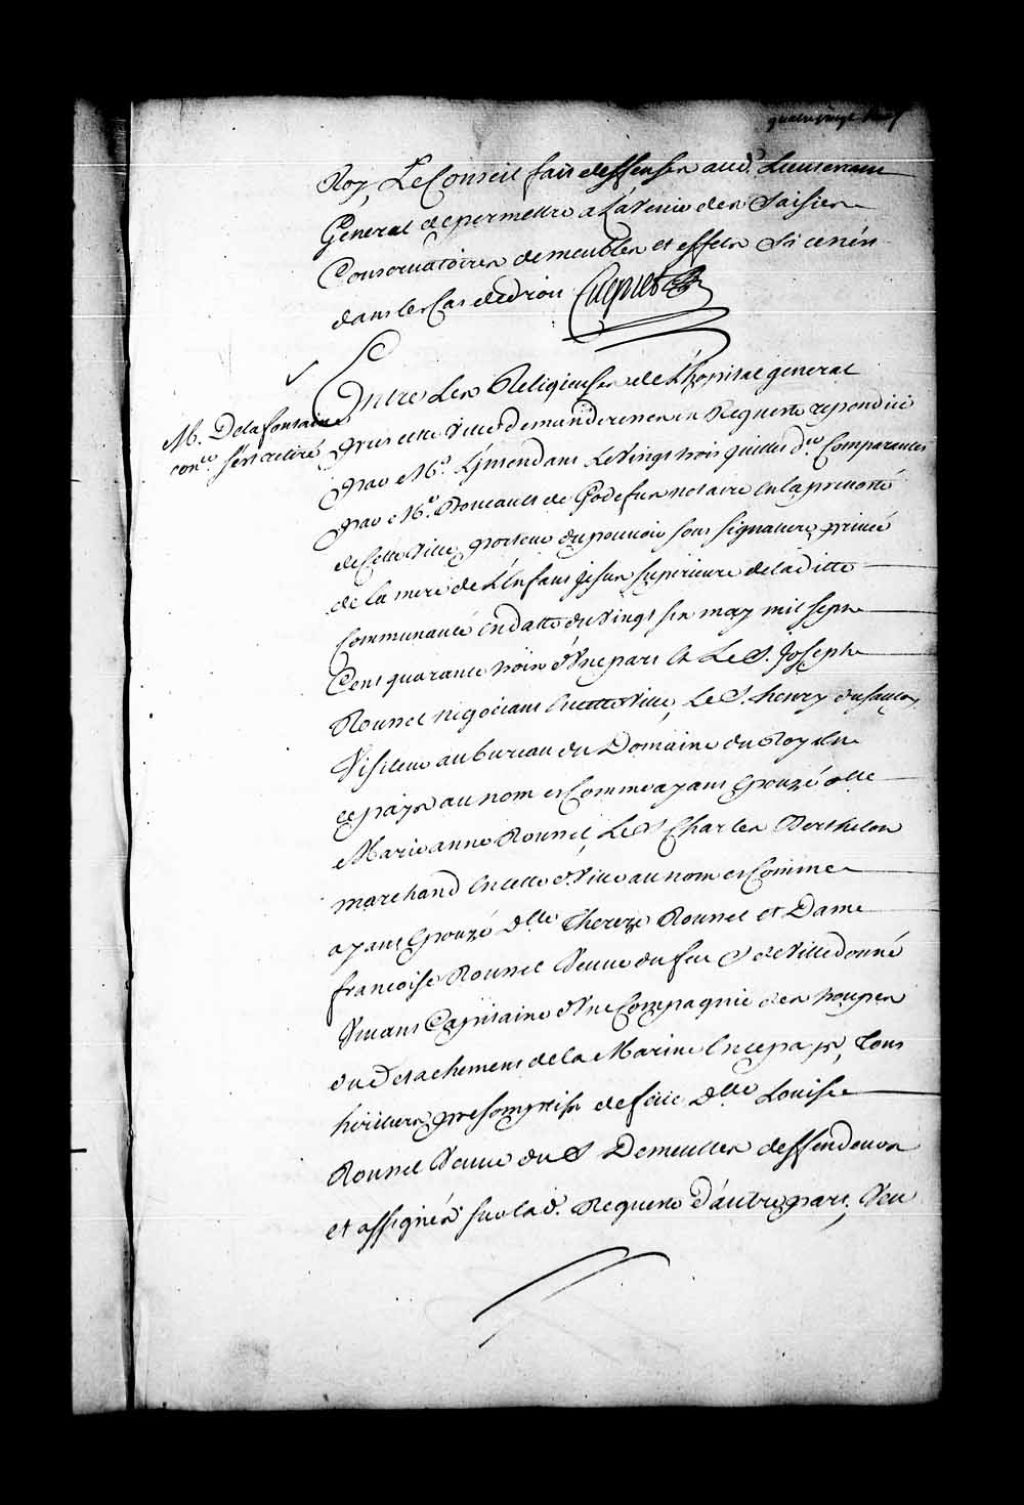 quatrevingt
Roy, Le Conseil fait deffenses aud. Lieutenant
General de permettre a L'avenir des Saisies
Conservatoires de meubles et effets Si ce n'est
dans les Cas de droit Cugnet
Entre Les Religieuses de L'hopital general
M. Delafontaine
con.er s'est retiré
pres cette Ville demanderesses en Requeste repondüe
par M.e Le Vingt trois juillet d.er Comparantes
par M.e Boucault de Godefus notaire en la prevosté
de Cette Ville, porteur du pouvoir sous signature privée
de la mere de L'Enfant jesus superieure de laditte
Communauté en datte du Vingt six may mil sept
Cent quarante trois d'Une part Et Le S. Joseph
Roussel negociant en cette Ville, Le S. henry
Visiteur au bureau du Domaine du Roy en
ce pays au nom et Comme ayant Epouzé d.lle
Marie anne Roussel, Le S. Charles Berthelot
marchand en cette d. Ville au nom et Comme
ayant Epouzé D.lle Thereze Roussel et Dame
francoise Roussel Veuve du feu S. de Villedonné
Vivant Capitaine d'Une Compagnie des troupes
du detachement de la Marine en ce pays, Tous
heritiers presomptifs de feüe D.lle Louise
Roussel Veuve du S. Demeulles deffendeurs
et assignés sur lad. Requeste d'autre part; Veu